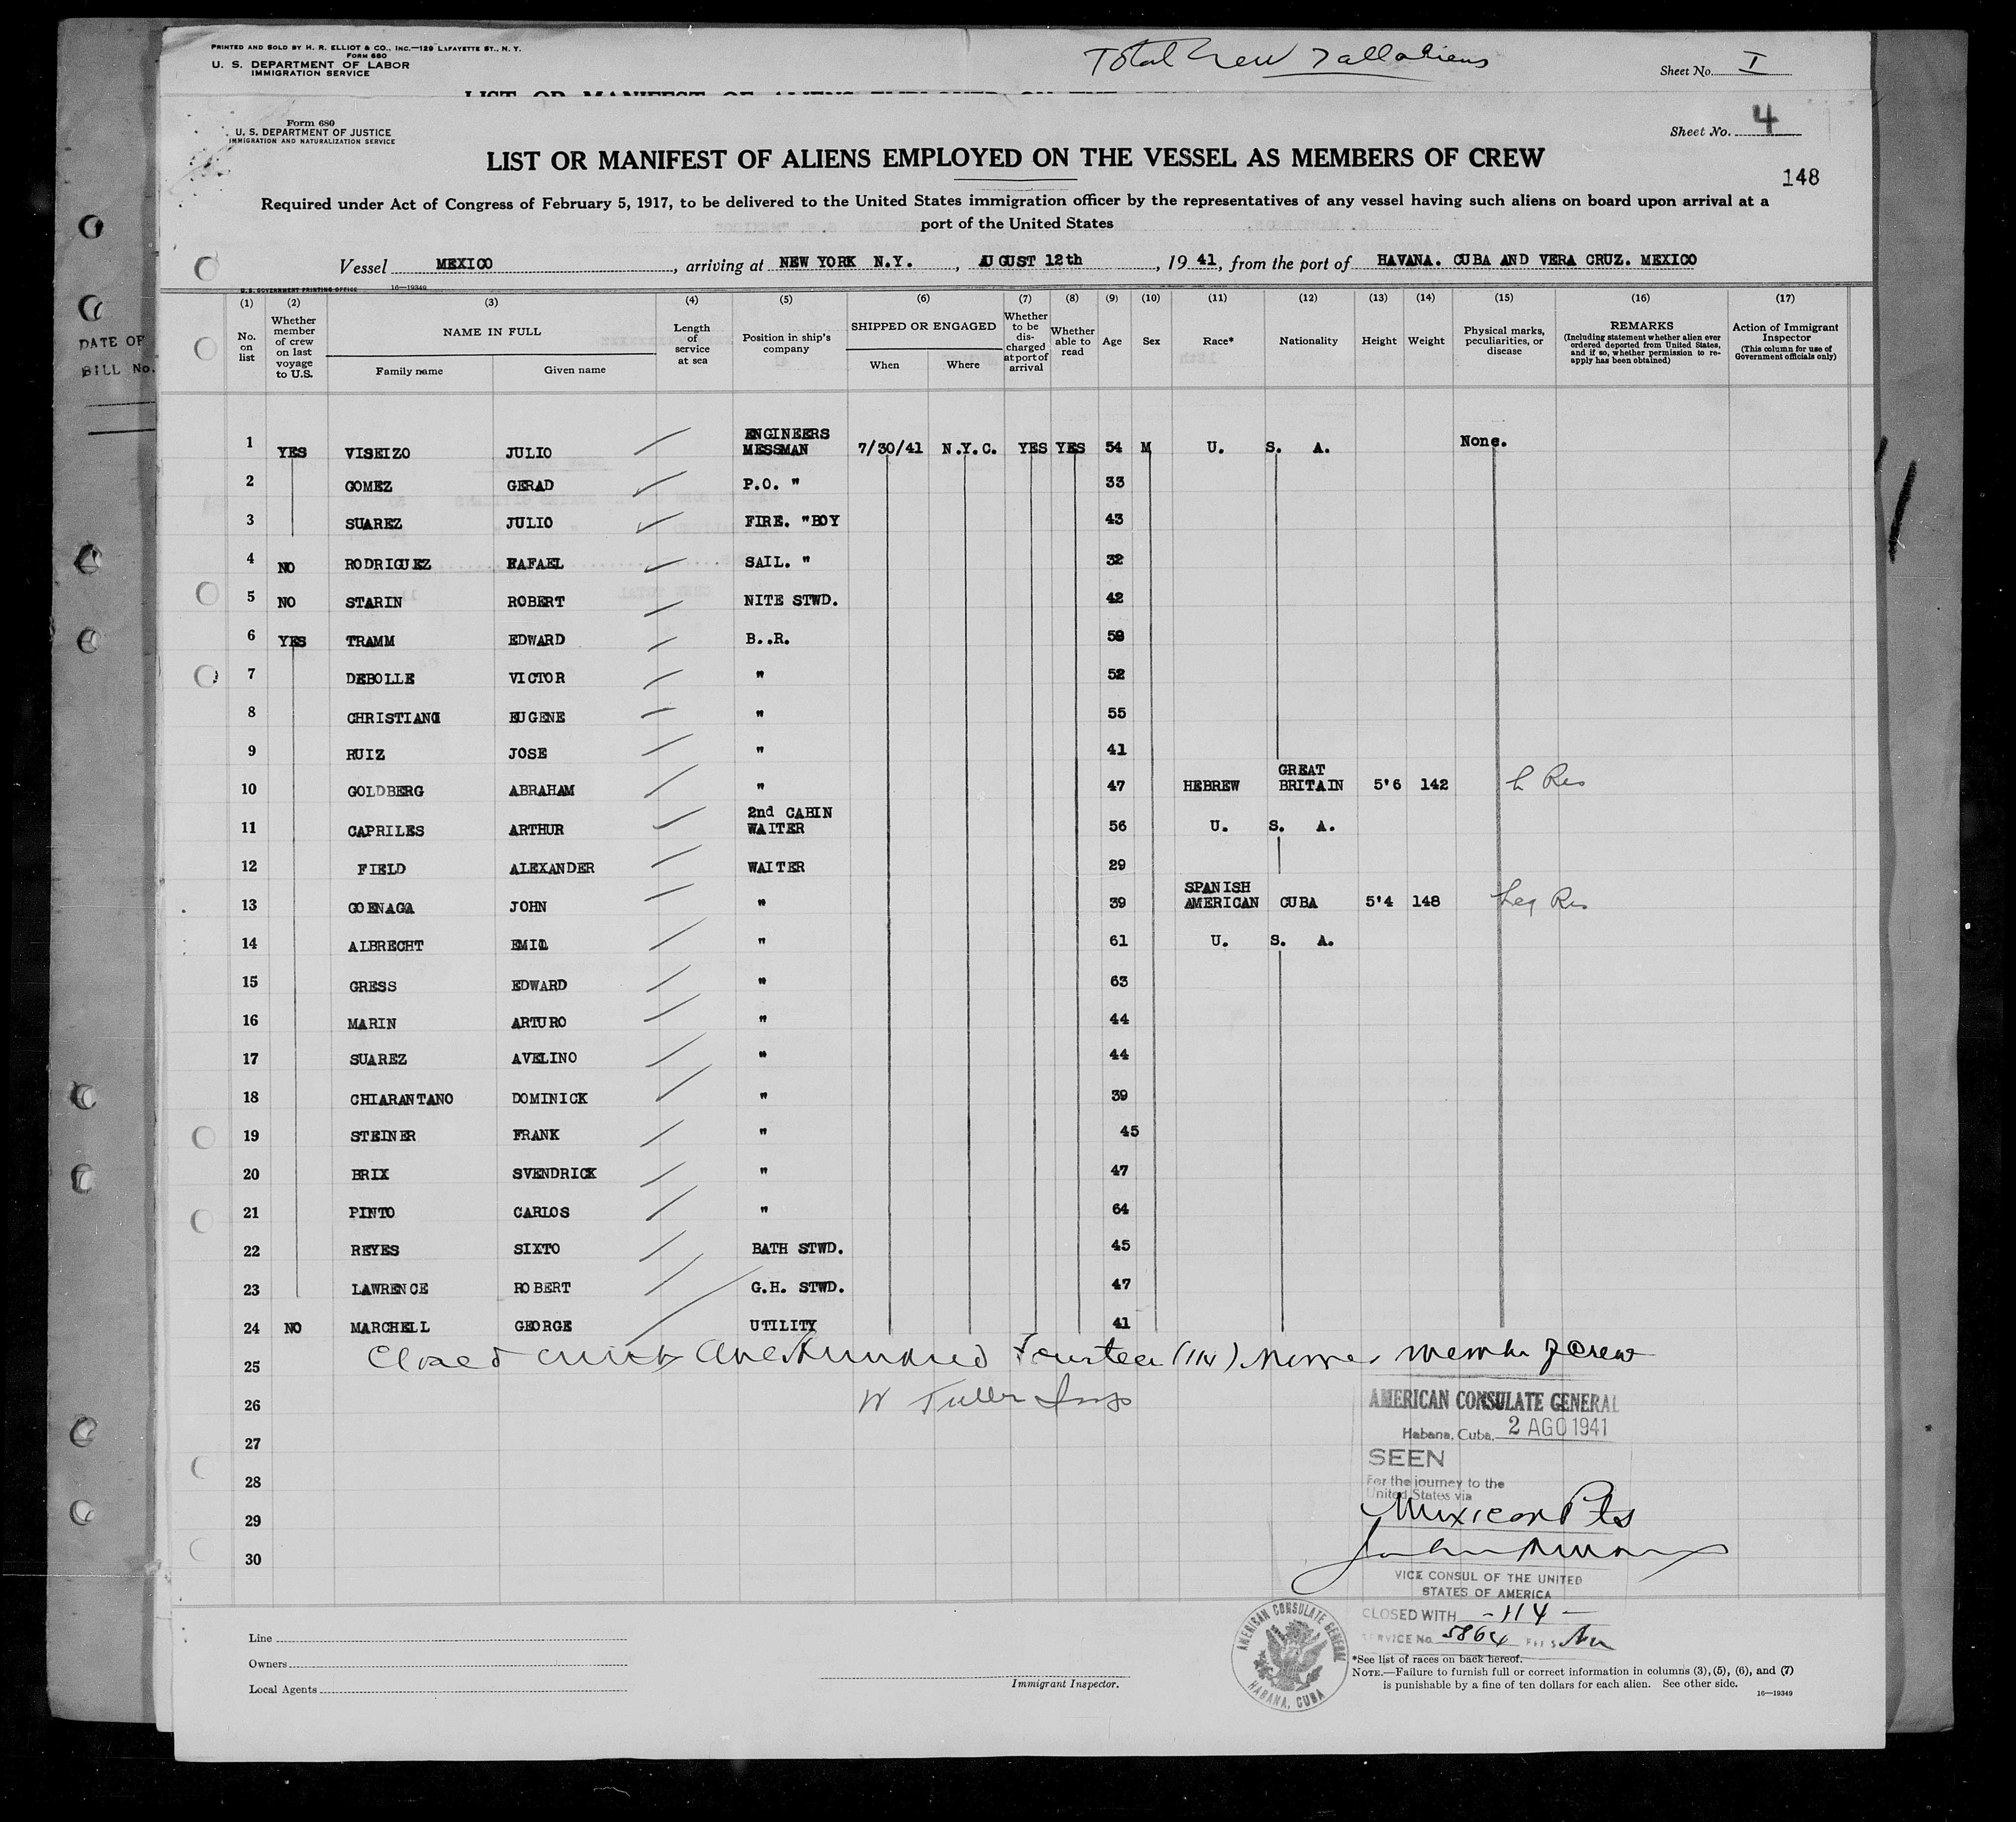 PRINTED AND SOLD BY H. R. ELLIOT & CO., INC.—129 LAFAYETTE ST., N. Y.
FORM 680
U. S. DEPARTMENT OF LABOR
IMMIGRATION SERVICE
Total Crew
Sheet No. I
Form 680
U. S. DEPARTMENT OF JUSTICE
IMMIGRATION AND NATURALIZATION SERVICE
Sheet No. 4
LIST OR MANIFEST OF ALIENS EMPLOYED ON THE VESSEL AS MEMBERS OF CREW
148
Required under Act of Congress of February 5, 1917, to be delivered to the United States immigration officer by the representatives of any vessel having such aliens on board upon arrival at a
port of the United States
Vessel MEXICO, arriving at NEW YORK N.Y., AUGUST 12th, 19 41, from the port of HAVANA. CUBA AND VERA CRUZ. MEXICO
U.S. GOVERNMENT PRINTING OFFICE 16—19349
DATE OF
BILL No.
(1) (2) (3) (4) (5) (6) (7) (8) (9) (10) (11) (12) (13) (14) (15) (16) (17)
No. on list
Whether member of crew on last voyage to U.S.
NAME IN FULL
Family name
Given name
Length of service at sea
Position in ship's company
SHIPPED OR ENGAGED
When
Where
Whether to be discharged at port of arrival
Whether able to read
Age
Sex
Race*
Nationality
Height
Weight
Physical marks, peculiarities, or disease
REMARKS
(Including statement whether alien ever ordered deported from United States, and if so, whether permission to reapply has been obtained)
Action of Immigrant Inspector
(This column for use of Government officials only)
1 YES VISEIZO JULIO ENGINEERS MESSMAN 7/30/41 N.Y.C. YES YES 54 M U. S. A. None.
2 GOMEZ GERAD P.O. " 33
3 SUAREZ JULIO FIRE. "BOY 43
4 NO RODRIGUEZ RAFAEL SAIL. " 32
5 NO STARIN ROBERT NITE STWD. 42
6 YES TRAMM EDWARD B..R. 59
7 DEBOLLE VICTOR " 52
8 CHRISTIANO EUGENE " 55
9 RUIZ JOSE " 41
10 GOLDBERG ABRAHAM " 47 HEBREW GREAT BRITAIN 5'6 142 L Res
11 CAPRILES ARTHUR 2nd CABIN WAITER 56 U. S. A.
12 FIELD ALEXANDER WAITER 29
13 GOENAGA JOHN " 39 SPANISH AMERICAN CUBA 5'4 148 Leg Res
14 ALBRECHT EMIL " 61 U. S. A.
15 GRESS EDWARD " 63
16 MARIN ARTURO " 44
17 SUAREZ AVELINO " 44
18 CHIARANTANO DOMINICK " 39
19 STEINER FRANK " 45
20 BRIX SVENDRICK " 47
21 PINTO CARLOS " 64
22 REYES SIXTO BATH STWD. 45
23 LAWRENCE ROBERT G.H. STWD. 47
24 NO MARCHELL GEORGE UTILITY 41
25 Closed with One Hundred Fourteen (114) Names member of Crew
26 W Tuller Insp
27
28
29
30
AMERICAN CONSULATE GENERAL
Habana, Cuba, 2 AGO 1941
SEEN
For the journey to the
United States via
Mexican Pts
VICE CONSUL OF THE UNITED
STATES OF AMERICA
CLOSED WITH -114-
SERVICE No. 5864
AMERICAN CONSULATE GENERAL
HABANA, CUBA
Line
Owners
Local Agents
Immigrant Inspector.
*See list of races on back hereof.
NOTE.—Failure to furnish full or correct information in columns (3), (5), (6), and (7)
is punishable by a fine of ten dollars for each alien. See other side.
16—19349